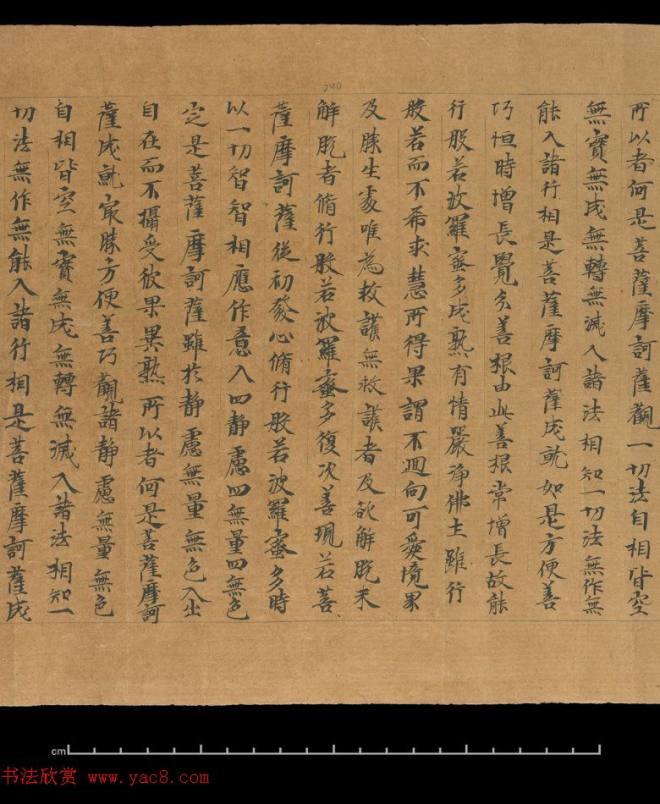 所以者何是菩薩摩訶薩觀一切法自相皆空
無實無成無轉無滅入諸法相知一切法無作無
能入諸行相是菩薩摩訶薩成就如是方便善
巧恒時增長覺分善根由此善根常增長故能
行般若波羅蜜多成熟有情嚴淨佛土雖行
般若而不希求慧所得果謂不迴向可愛境果
及勝生處唯為救護無救護者及欲解脫未
解脫者脩行般若波羅蜜多復次善現若菩
薩摩訶薩從初發心脩行般若波羅蜜多時
以一切智智相應作意入四靜慮四無量四無色
定是菩薩摩訶薩雖於靜慮無量無色入出
自在而不攝受彼果異熟所以者何是菩薩摩訶
薩成就寂勝方便善巧觀諸靜慮無量無色
自相皆空無實無成無轉無滅入諸法相知一
切法無作無能入諸行相是菩薩摩訶薩成
240
cm
书法欣赏 www.yac8.com